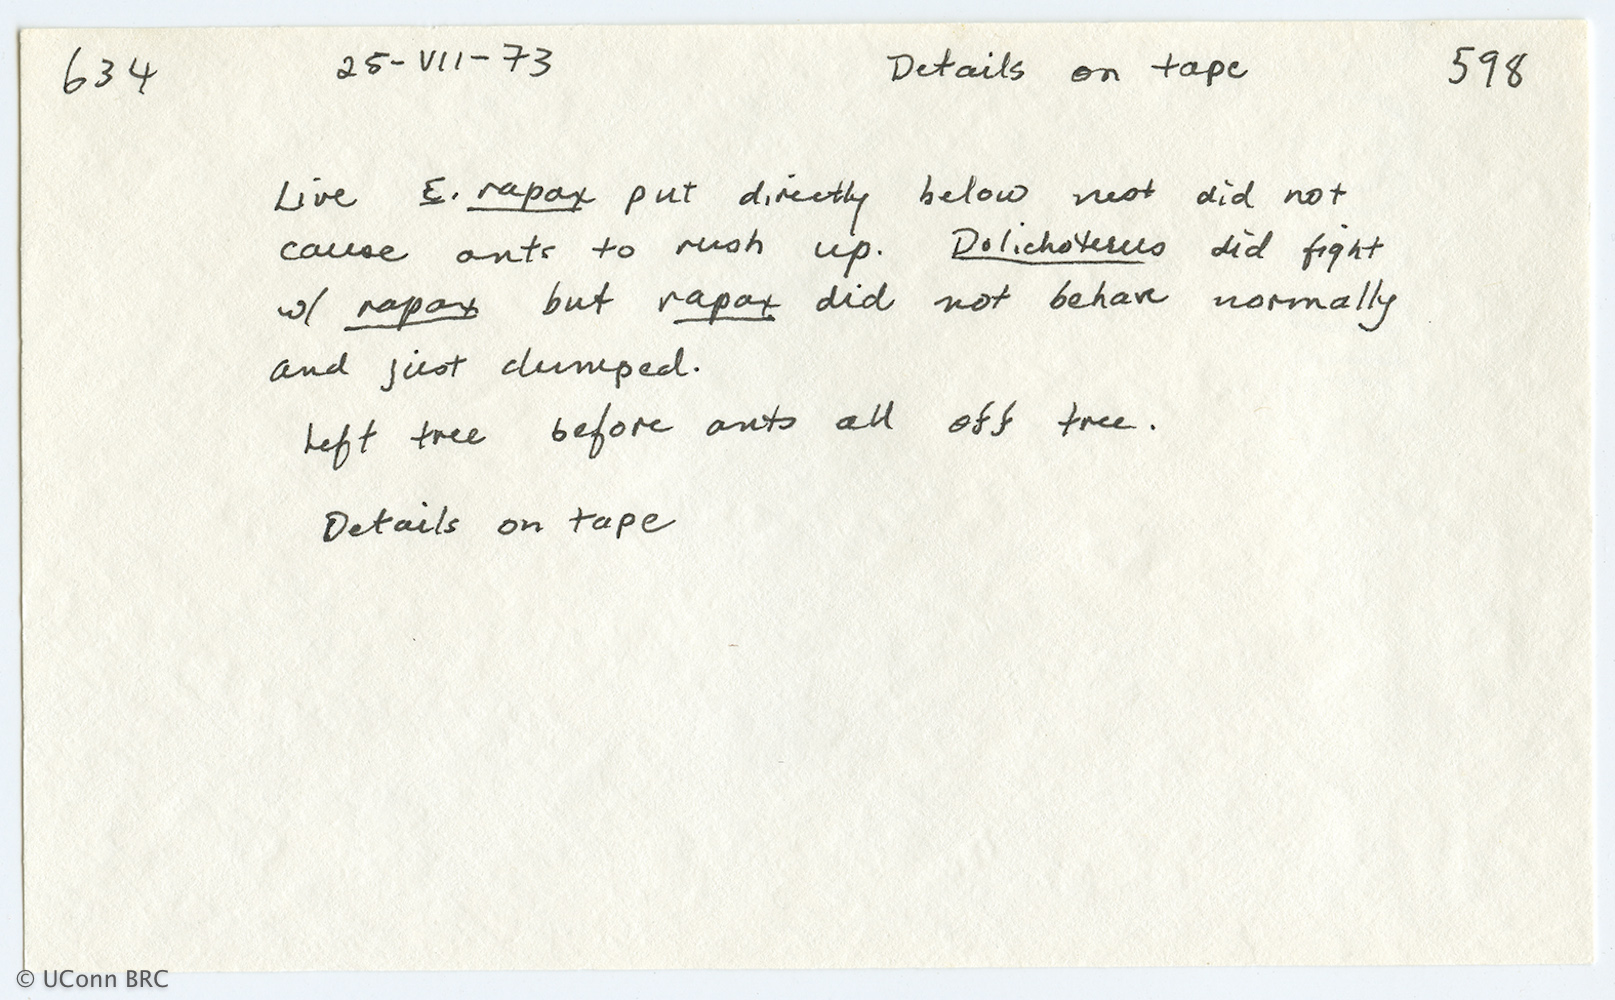 634 25-VII-73 Details on tape 598
Live E. rapax put directly below nest did not
cause ants to rush up. Dolichoderus did fight
w/ rapax but rapax did not behave normally
and just clumped.
Left tree before ants all off tree.
Details on tape
© UConn BRC